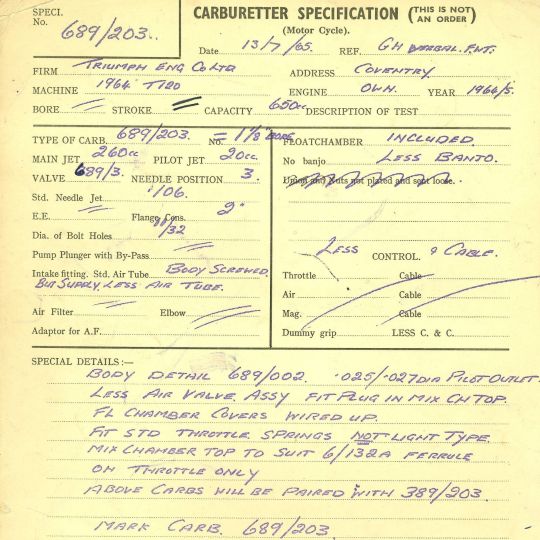 SPECI. No. 689/203..
CARBURETTER SPECIFICATION (THIS IS NOT AN ORDER)
(Motor Cycle).
Date 13/7/65. REF. G.H. VERBAL.
FIRM TRIUMPH ENG CO LTD ADDRESS COVENTRY
MACHINE 1964 T120 ENGINE OWN. YEAR 1964/5.
BORE STROKE CAPACITY 650cc DESCRIPTION OF TEST
TYPE OF CARB. 689/203. No. = 1 1/8" BORE FLOATCHAMBER INCLUDED.
MAIN JET 260cc PILOT JET 20cc. No banjo LESS BANJO.
VALVE 689/3. NEEDLE POSITION 3. Union and Nuts not plated and sent loose.
Std. Needle Jet .106.
E.E. Flange Cens. 2"
Dia. of Bolt Holes 11/32
Pump Plunger with By-Pass LESS CONTROL. & CABLE.
Intake fitting. Std. Air Tube BODY SCREWED Throttle Cable
BUT SUPPLY LESS AIR TUBE. Air Cable
Air Filter Elbow Mag. Cable
Adaptor for A.F. Dummy grip LESS C. & C.
SPECIAL DETAILS :—
BODY DETAIL 689/002. .025/.027 DIA PILOT OUTLET.
LESS AIR VALVE ASSY FIT PLUG IN MIX CH TOP.
FL CHAMBER COVERS WIRED UP.
FIT STD THROTTLE SPRINGS NOT LIGHT TYPE.
MIX CHAMBER TOP TO SUIT 6/132A FERRULE
ON THROTTLE ONLY
ABOVE CARBS WILL BE PAIRED WITH 389/203.
MARK CARB. 689/203.